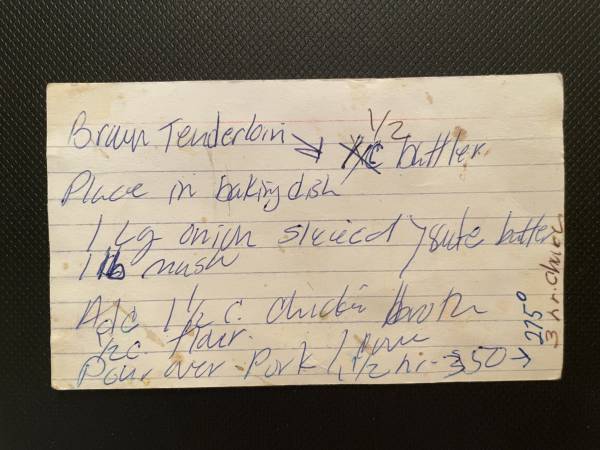 Brown Tenderloin → 1/2 c butter
Place in baking dish
1 Lg onion sliced } saute butter
1 lb mush
Add 1 1/2 c. chicken broth
1/2 c. flour
Pour over Pork 1 1/2 hr - 350 →
275°
3 hr.